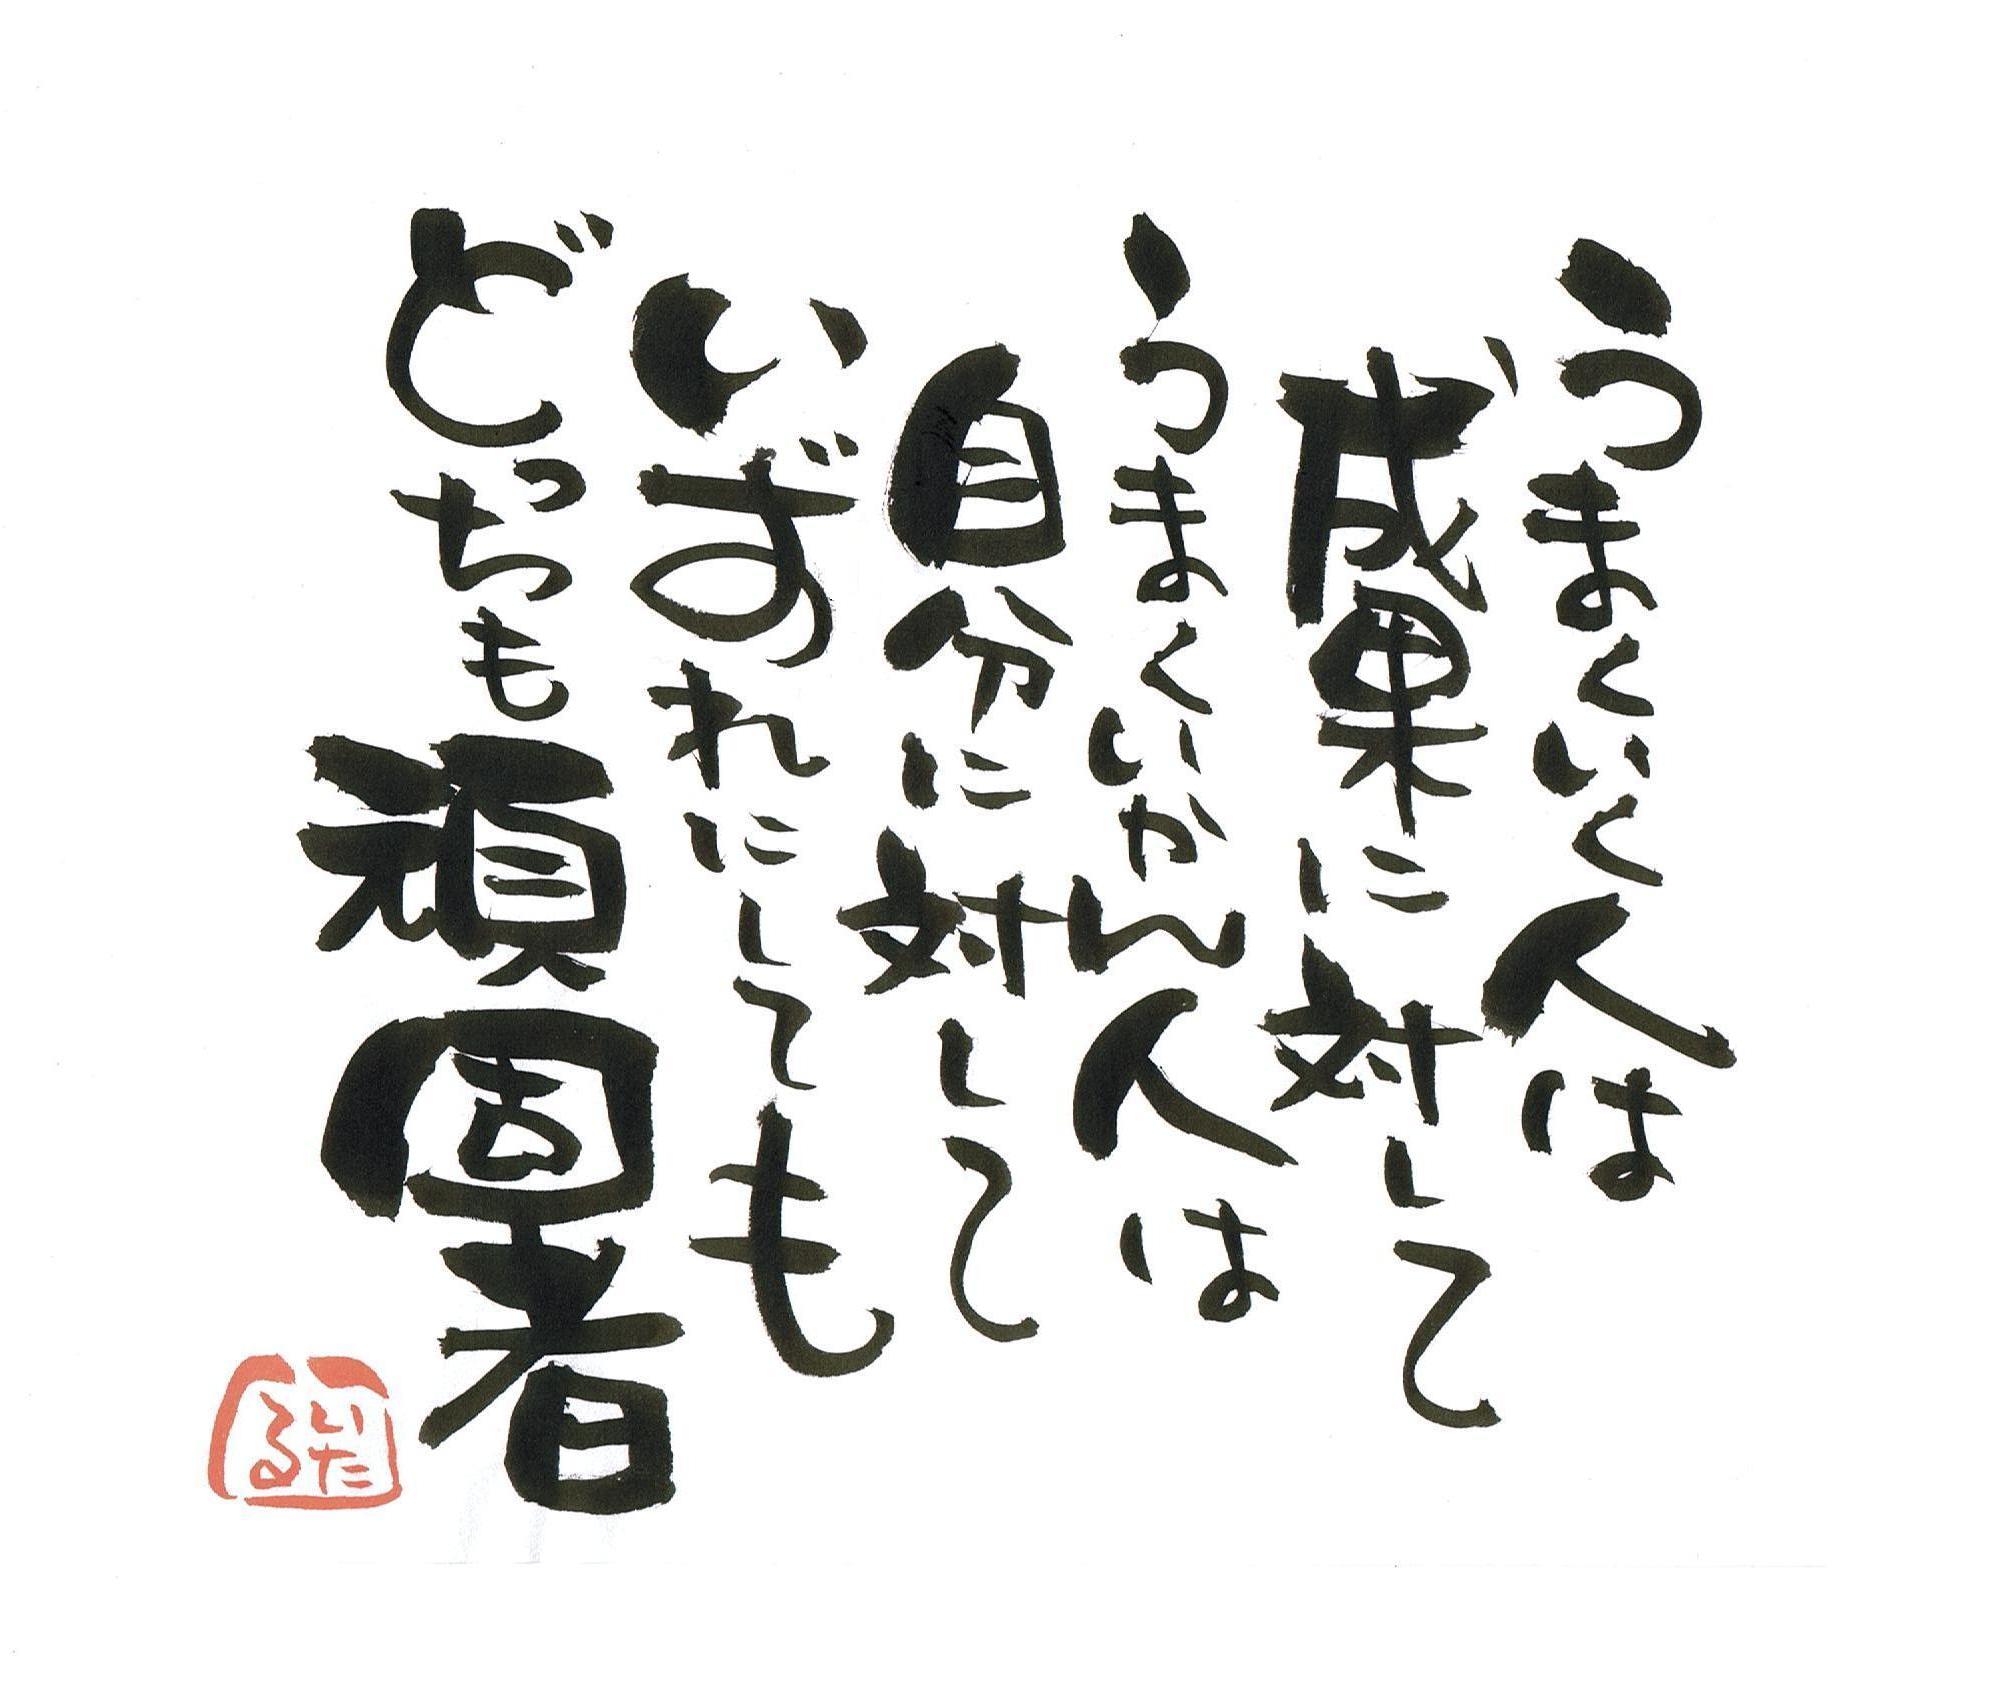 うまくいく人は
成果に対して
うまくいかん人は
自分に対して
いずれにしても
どっちも頑固者
いた
る